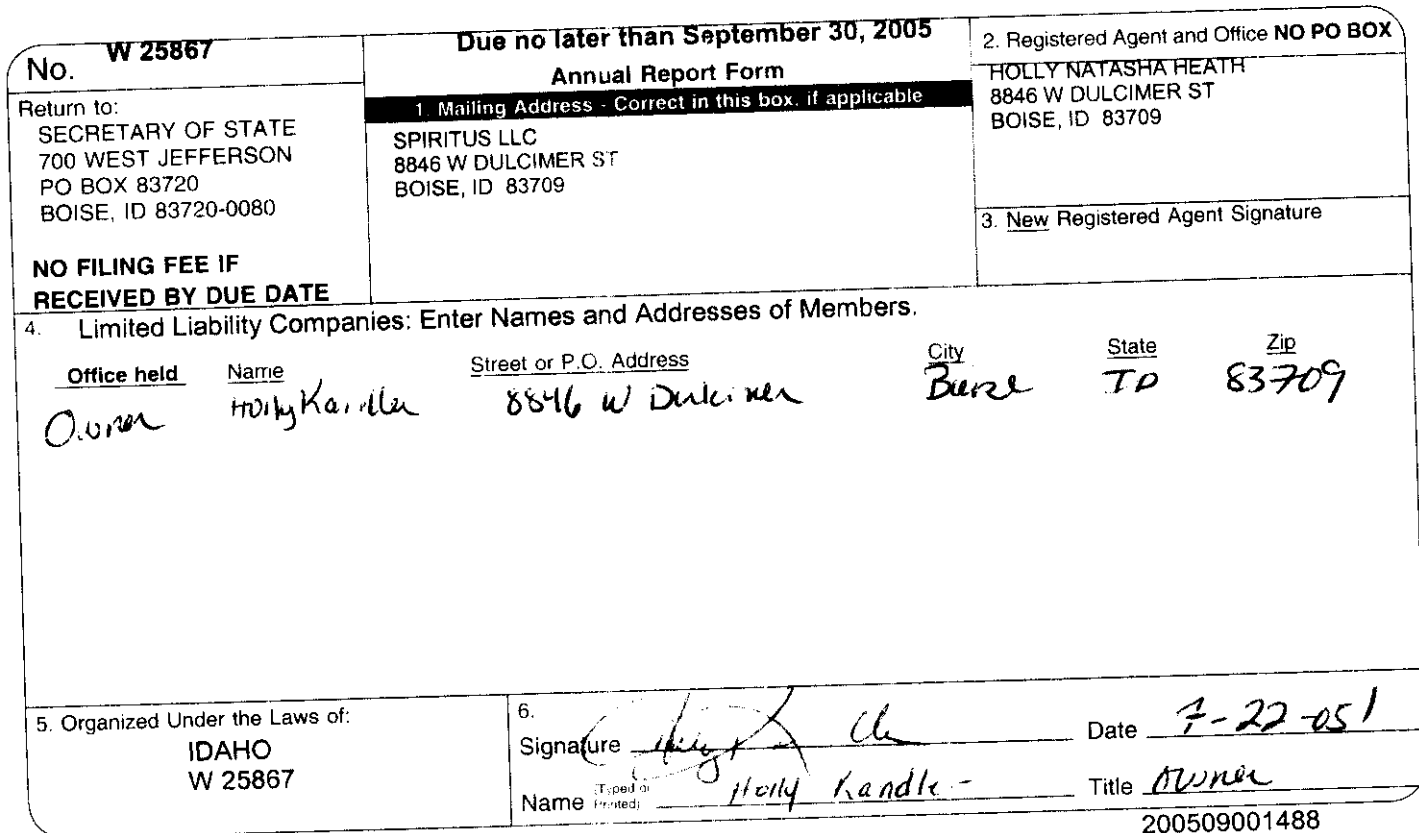 No. W 25867
Return to:
SECRETARY OF STATE
700 WEST JEFFERSON
PO BOX 83720
BOISE, ID 83720-0080
NO FILING FEE IF
RECEIVED BY DUE DATE
Due no later than September 30, 2005
Annual Report Form
1. Mailing Address - Correct in this box, if applicable
SPIRITUS LLC
8846 W DULCIMER ST
BOISE, ID 83709
2. Registered Agent and Office NO PO BOX
HOLLY NATASHA HEATH
8846 W DULCIMER ST
BOISE, ID 83709
3. New Registered Agent Signature
4. Limited Liability Companies: Enter Names and Addresses of Members.
Office held Name Street or P.O. Address City State Zip
Owner Holly Kandler 8846 W Dulcimer Boise ID 83709
5. Organized Under the Laws of:
IDAHO
W 25867
6.
Signature Date 7-22-05
Name (Typed or Printed) Holly Kandle Title Owner
200509001488